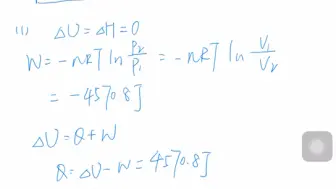 (1) ΔU = ΔH = 0
W = -nRT ln P₂/P₁ = -nRT ln V₁/V₂
= -4570.8J
ΔU = Q + W
Q = ΔU - W = 4570.8J